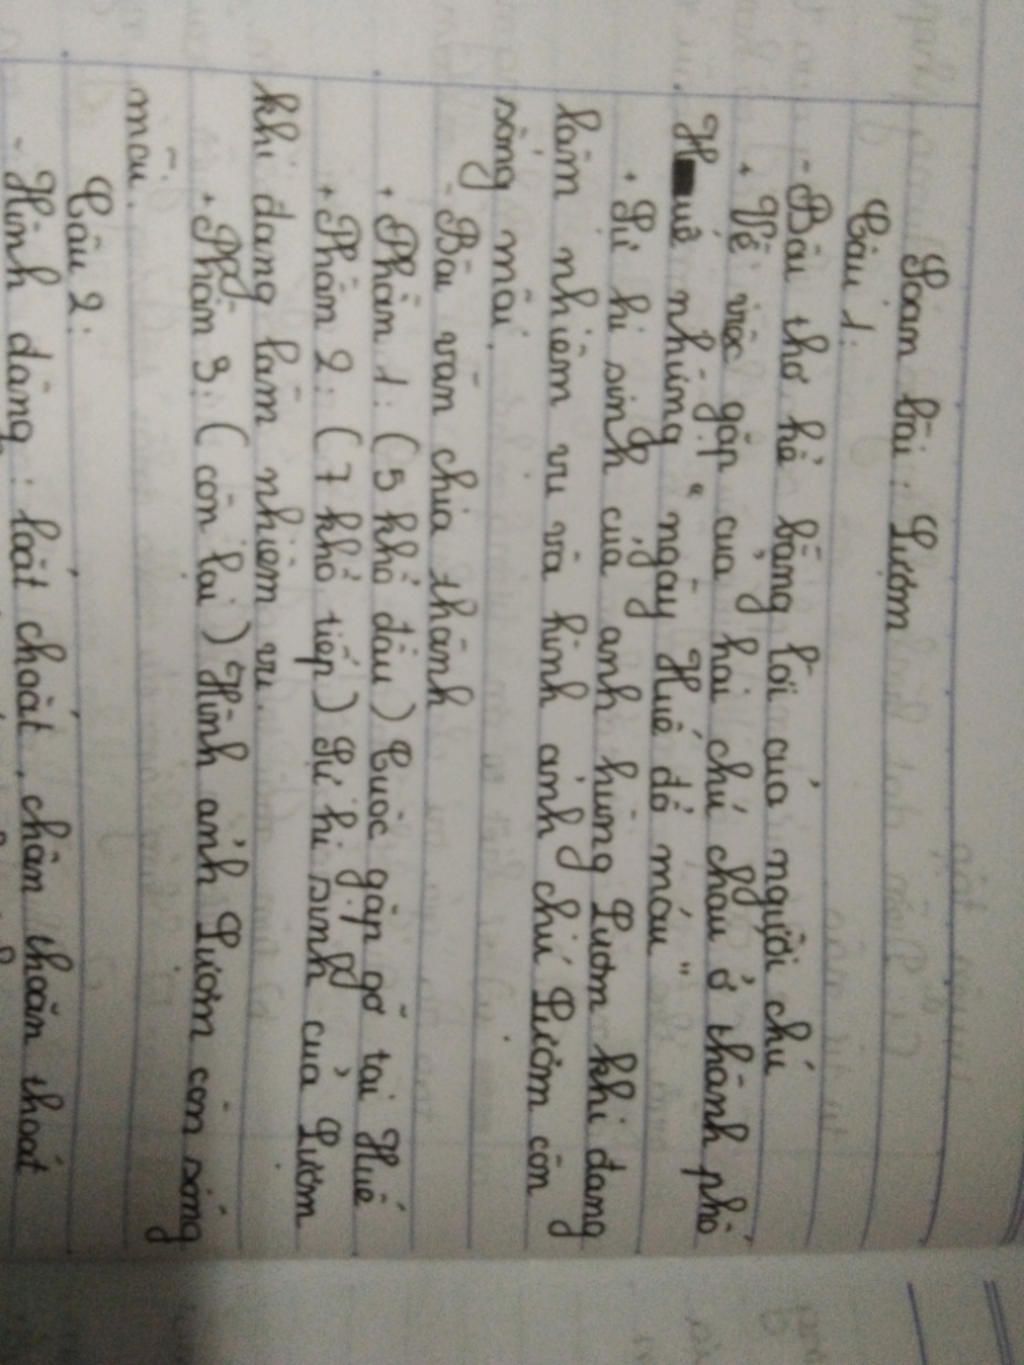 Soạn bài: Lượm
Câu 1:
- Bài thơ kể bằng lời của người chú
+ Về việc gặp của hai chú cháu ở thành phố
Huế những "ngày Huế đổ máu"
+ Sự hi sinh của anh hùng Lượm khi đang
làm nhiệm vụ và hình ảnh chú Lượm còn
sống mãi.
- Bài văn chia thành
+ Phần 1: (5 khổ đầu) Cuộc gặp gỡ tại Huế
+ Phần 2: (7 khổ tiếp) Sự hi sinh của Lượm
khi đang làm nhiệm vụ.
+ Phần 3: (còn lại) Hình ảnh Lượm còn sống
mãi.
Câu 2:
- Hình dáng: loắt choắt, chân thoăn thoắt